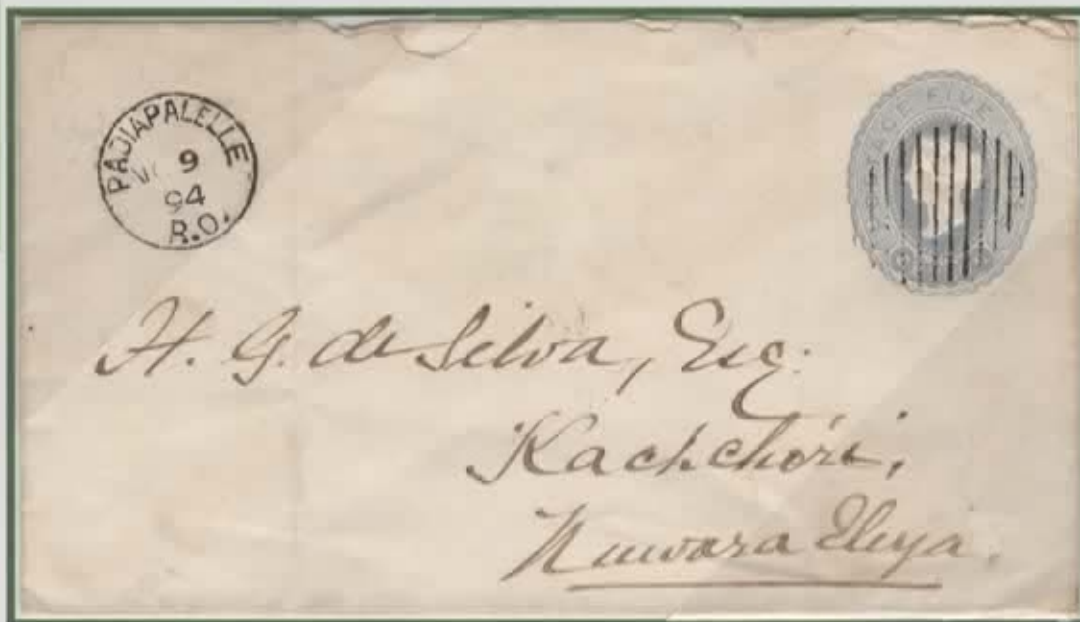 PADIAPALELLE
9
94
R.O.
FIVE
H. G. de Silva, Esq.
Kachcheri,
Nuwara Eliya.